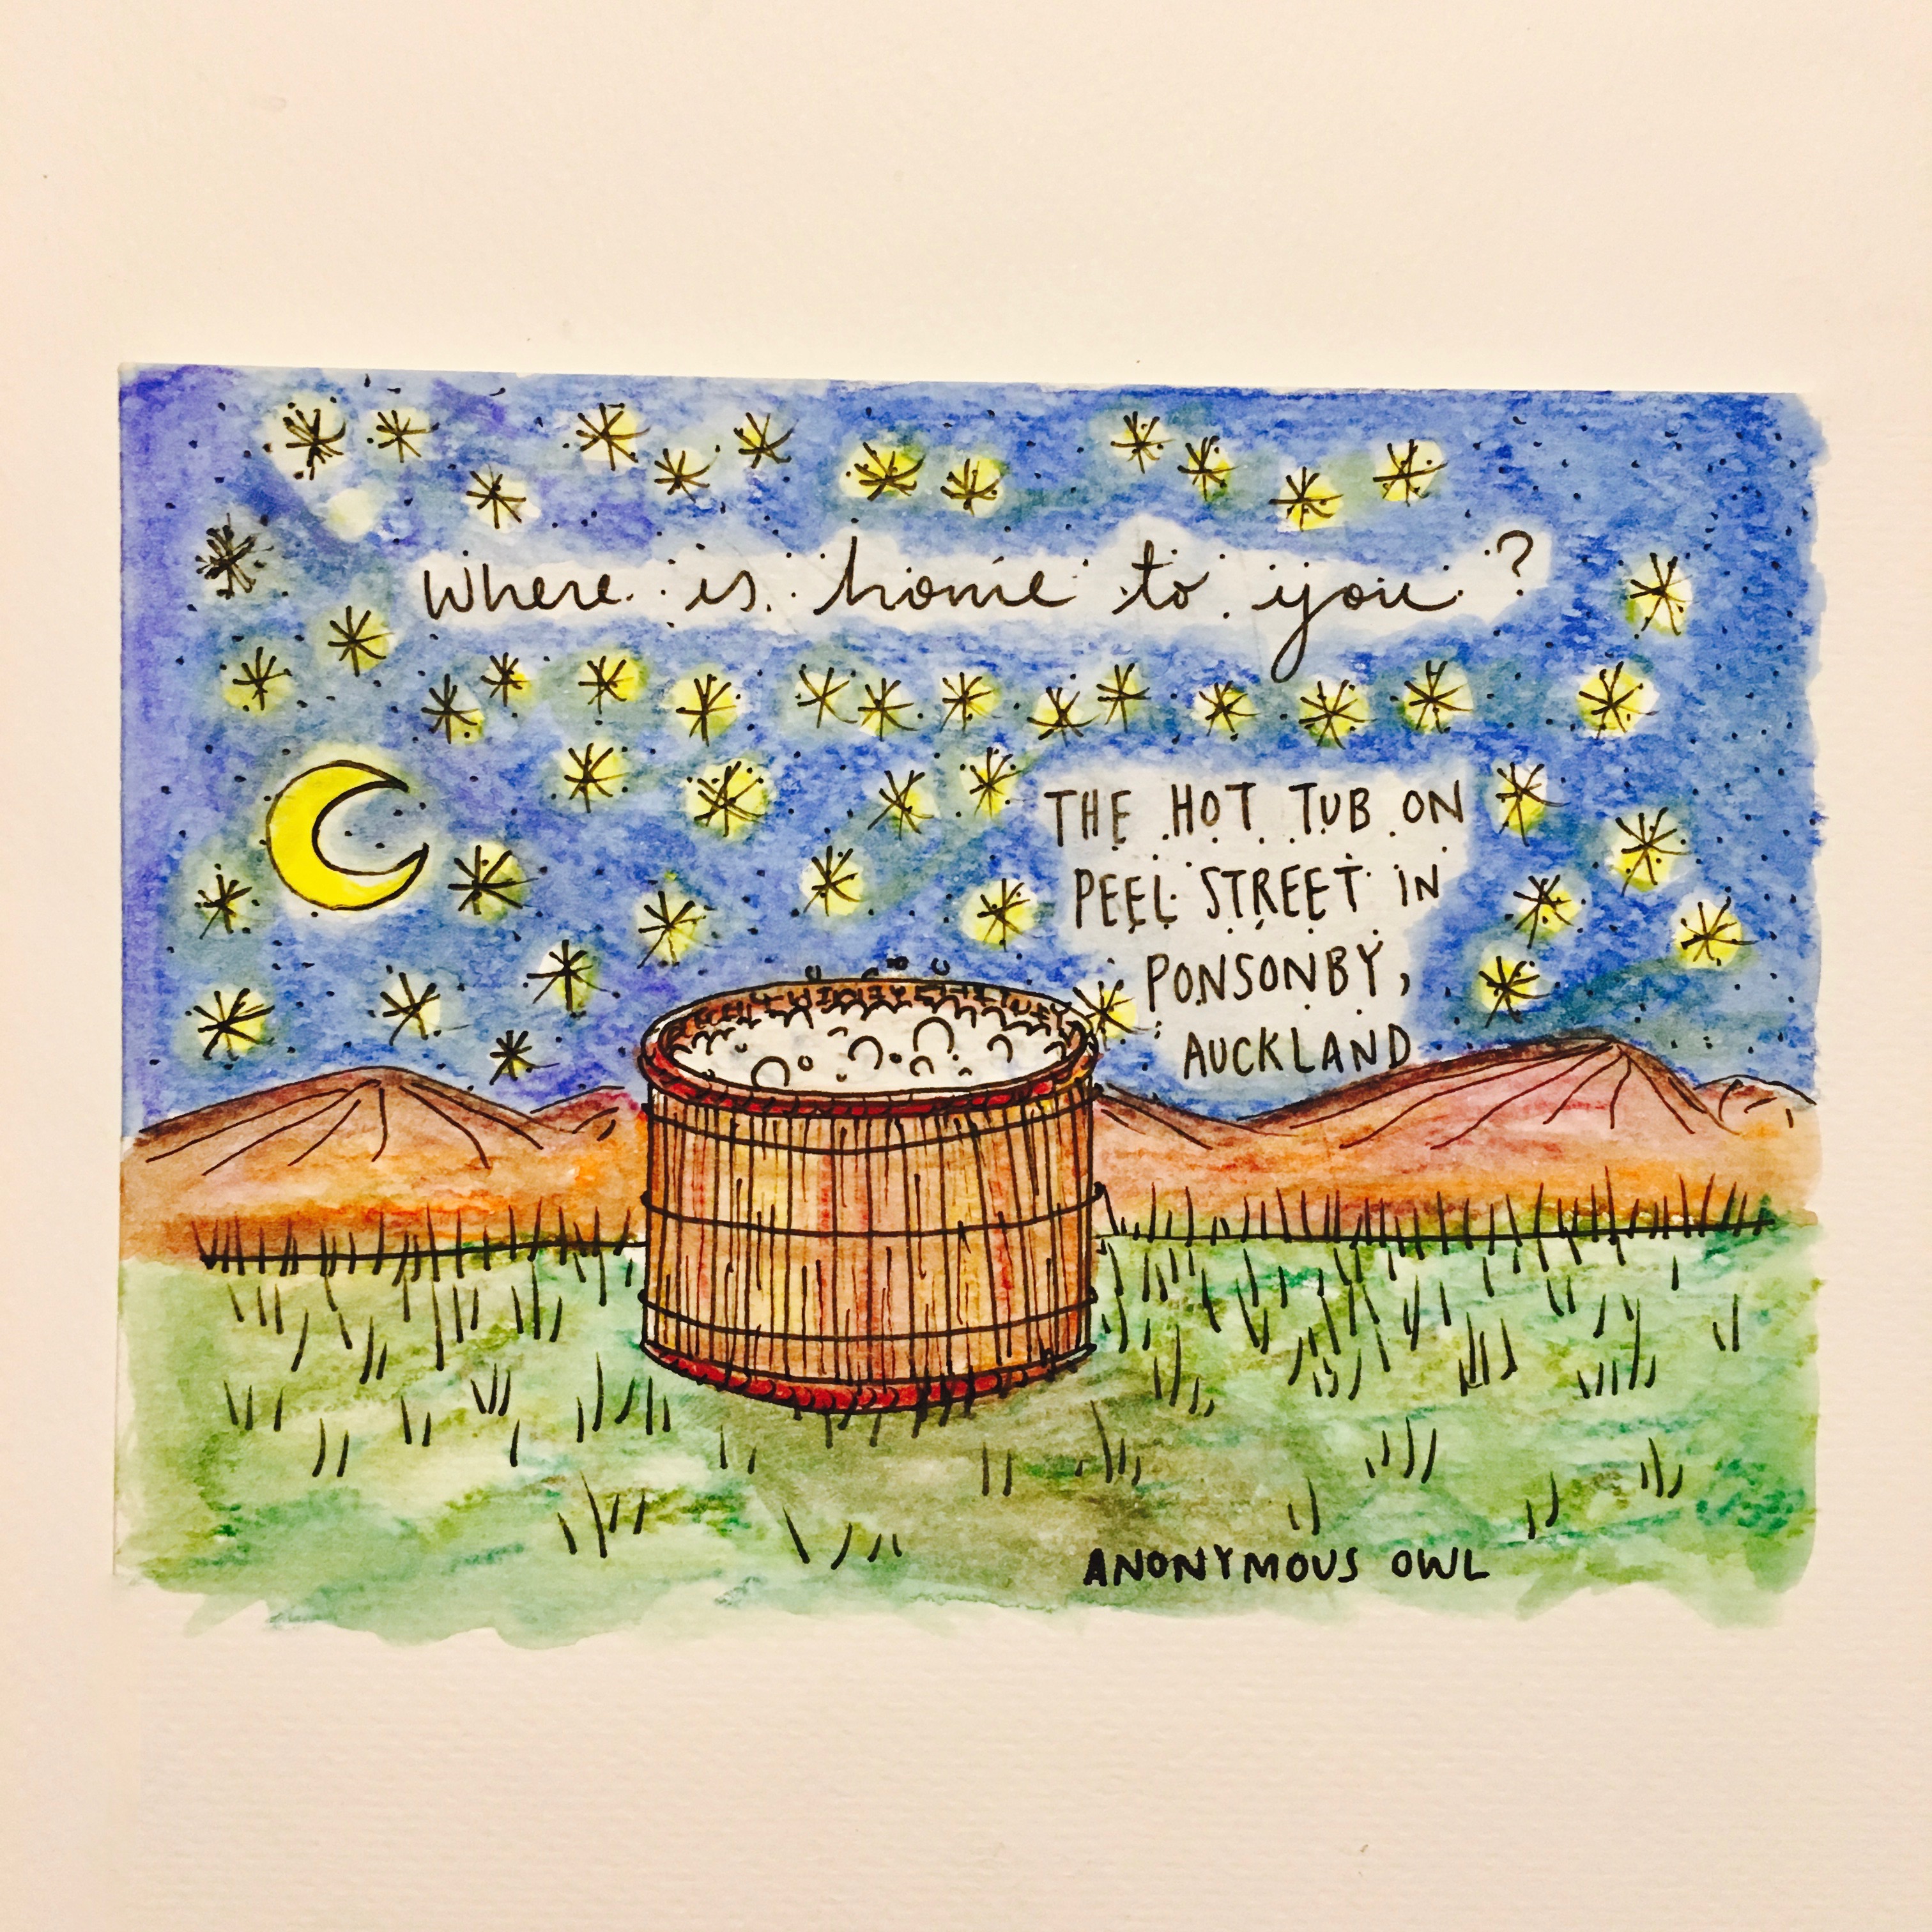 Where is home to you?
THE HOT TUB ON
PEEL STREET IN
PONSONBY,
AUCKLAND
ANONYMOUS OWL